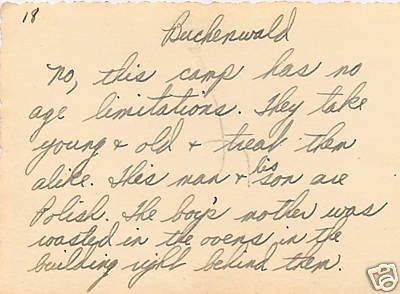 18
Buchenwald
No, this camp has no
age limitations. They take
young & old & treat them
alike. This man & his son are
Polish. The boy's mother was
roasted in the ovens in the
building right behind them.